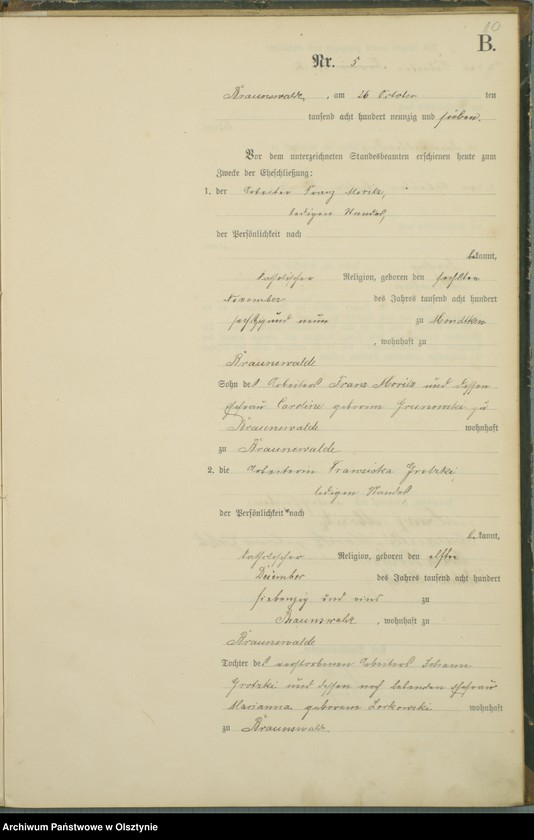 10
B.
Nr. 5
Braunswalde, am 26 October ten
tausend acht hundert neunzig und sieben.
Vor dem unterzeichneten Standesbeamten erschienen heute zum
Zwecke der Eheschließung:
1. der Arbeiter Franz Moritz,
ledigen Standes,
der Persönlichkeit nach
bekannt,
katholischer Religion, geboren den sechsten
November des Jahres tausend acht hundert
sechszig und neun zu Mondtken
, wohnhaft zu
Braunswalde
Sohn des Arbeiters Franz Moritz und dessen
Ehefrau Caroline geborene Grunowski zu
Braunswalde wohnhaft
zu Braunswalde
2. die Arbeiterin Franziska Grotzki,
ledigen Standes,
der Persönlichkeit nach
bekannt,
katholischer Religion, geboren den elften
Dezember des Jahres tausend acht hundert
siebenzig und eins zu
Braunswalde, wohnhaft zu
Braunswalde
Tochter des verstorbenen Arbeiters Johann
Grotzki und dessen noch lebenden Ehefrau
Marianna geborene Lorkowski wohnhaft
zu Braunswalde.
Archiwum Państwowe w Olsztynie